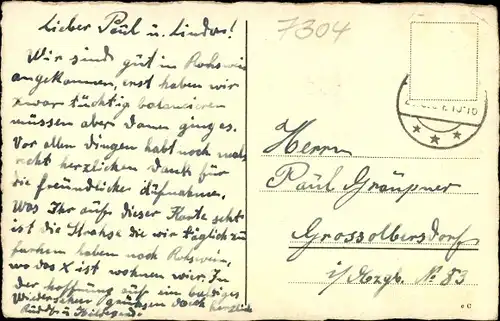 Lieber Paul u. Linda!
Wir sind gut in Roßwein
angekommen, erst haben wir
zwar tüchtig balancieren
müssen aber dann ging es.
Vor allen dingen habt noch mals
recht herzlichen Dank für
die freundliche Aufnahme.
Was Ihr auf dieser Karte seht
ist die Strahse die wir täglich zu
fahren haben nach Rohswein,
wo das X ist wohnen wir. In
der hoffnung auf ein baldiges
Wiedersehen grüssen Euch herzlich
Rudolf u. Hildegard.
7304
Herrn
Paul Gräupner
Grossolbersdorf
i/Erzgb. No 83
e C